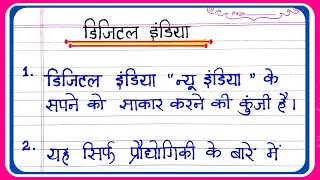 Page
डिजिटल इंडिया
1. डिजिटल इंडिया "न्यू इंडिया" के
सपने को साकार करने की कुंजी है।
2. यह सिर्फ प्रौद्योगिकी के बारे में